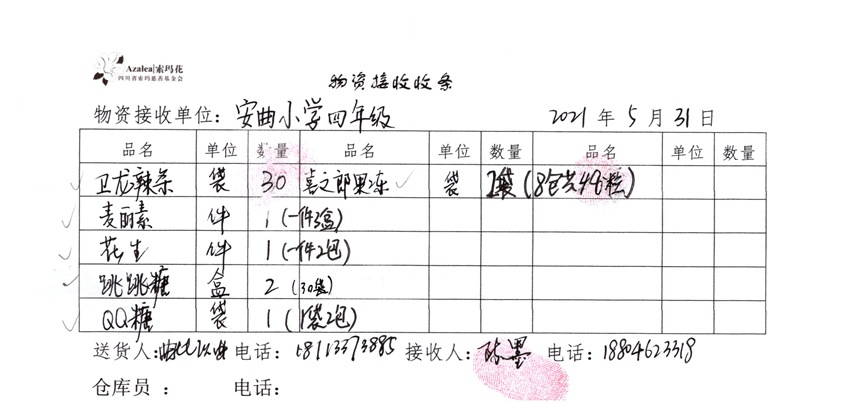 Azalea|索玛花
四川省索玛慈善基金会
物资接收收条
物资接收单位：安曲小学四年级 2021 年 5 月 31 日
品名 单位 数量 品名 单位 数量 品名 单位 数量
卫龙辣条 袋 30 喜之郎果冻 袋 2袋(8包共48粒)
麦丽素 件 1 (一件3盒)
花生 件 1 (一件2包)
跳跳糖 盒 2 (30袋)
QQ糖 袋 1 (1袋2包)
送货人： 电话：18113373885 接收人：陈墨 电话：18804623319
仓库员 ： 电话：